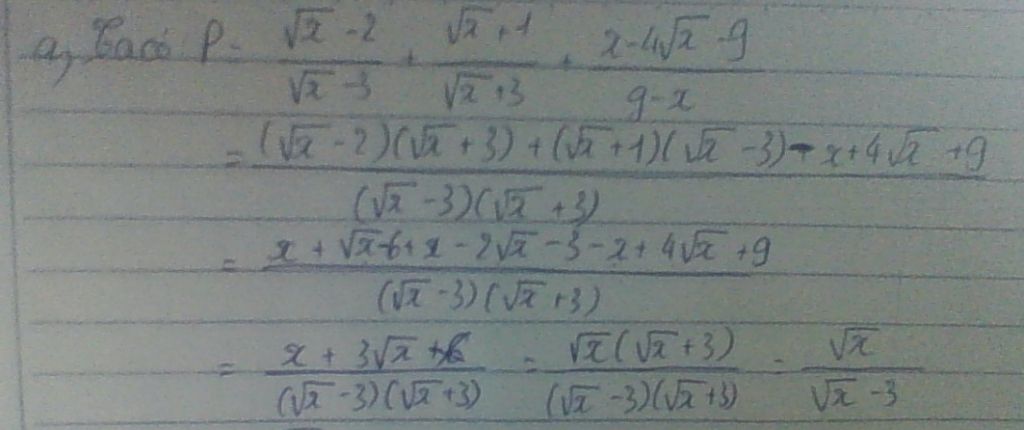 a, Ta có P = (√x - 2)/(√x - 3) + (√x + 1)/(√x + 3) + (x - 4√x - 9)/(9 - x)
= ((√x - 2)(√x + 3) + (√x + 1)(√x - 3) - x + 4√x + 9)/((√x - 3)(√x + 3))
= (x + √x - 6 + x - 2√x - 3 - x + 4√x + 9)/((√x - 3)(√x + 3))
= (x + 3√x)/((√x - 3)(√x + 3)) = (√x(√x + 3))/((√x - 3)(√x + 3)) = √x/(√x - 3)